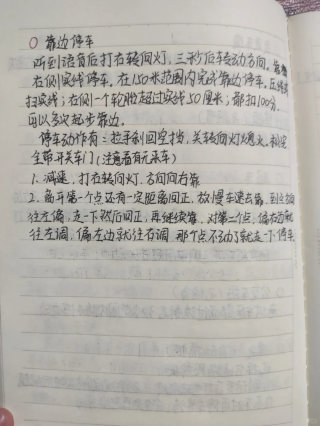 ○ 靠边停车
听到语音后打右转向灯，三秒后转动方向。靠
右侧实线停车。在150米范围内完成靠边停车。压
扫实线；右侧一个轮胎超过实线50厘米；都扣100分
可以多次起步靠边。
停车动作有：拉手刹回空挡，关转向灯熄火，松安
全带开关车门（注意看有无来车）
1. 减速，打右转向灯，方向向右靠
2. 离第一个点还有一定距离回正，放慢车速去靠，到点
往左偏，走一下然后回正，再继续靠，对第二个点，偏右边就
往左调，偏左边就往右调，那个点不动了就走一下停车